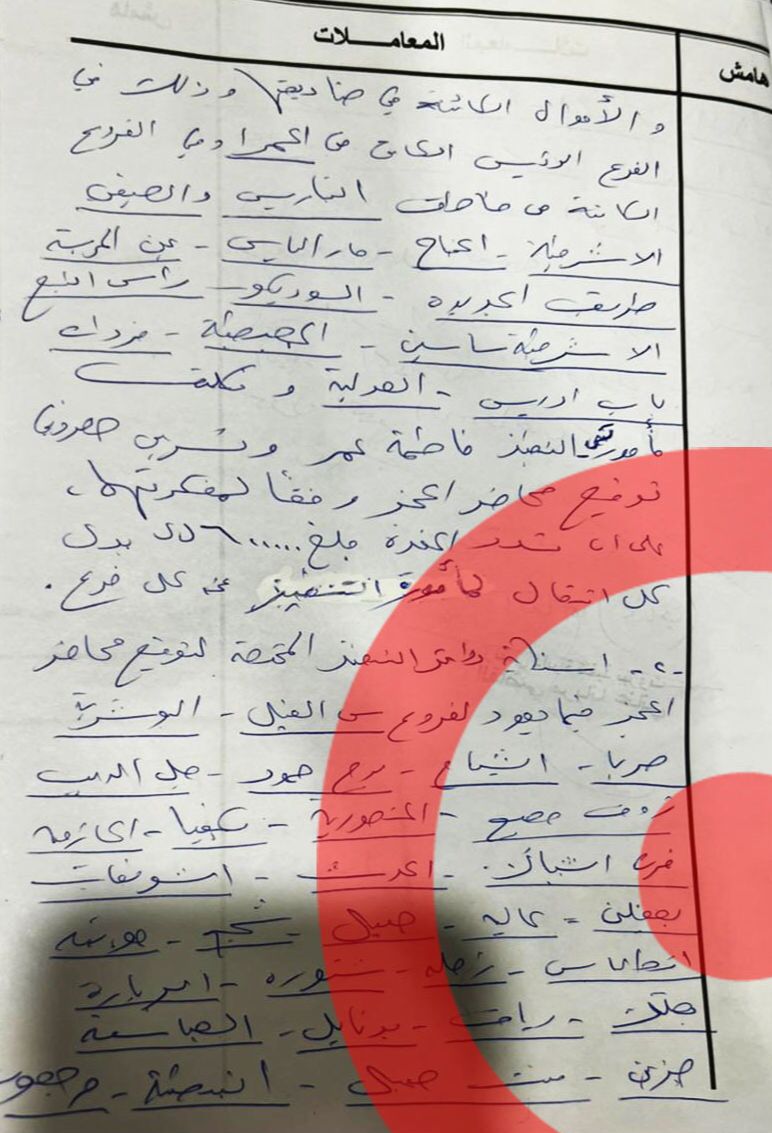 هامش
المعاملات
والأموال الكائنة في صناديقها وذلك في
الفرع الرئيسي الكائن في الحمرا وفي الفروع
الكائنة في مناطق الباريس والصيفي
الاشرفية - الجناح - مار الياس - عين المريسة
طريق الجديدة - السوديكو - راس النبع
الاشرفية ساسين - المصيطبة - فردان
باب ادريس - العدلية و تكليف
مأمورتي التنفيذ فاطمة عمر و
توقيع محاضر الحجز وفقاً لمفكرتهما،
على ان تسدد المنفذة مبلغ ٦٠٠٠٠٠ ل.ل بدل
كل انتقال لمأمورة التنفيذ عن كل فرع.
-٢- استنابة دوائر التنفيذ المختصة لتوقيع محاضر
الحجز فيما يعود لفروع سن الفيل - البوشرية
صربا - الشياح - برج حمود - جل الديب
زوق مصبح - المنصورية - بكفيا - الحازمية
فرن الشباك - الحدث - الشويفات
بعقلين - عاليه - جبيل - شحيم -
انطلياس - زحله - شتوره -
جلالا - رياق - بدنايل - العباسية
جزين - بنت جبيل - النبطية - مرجعيون